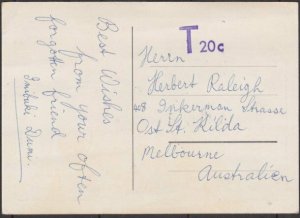 Best Wishes
from your often
forgotten friend
T 20c
Herrn
Herbert Raleigh
408 Inkerman Strasse
Ost St. Kilda
Melbourne
Australien